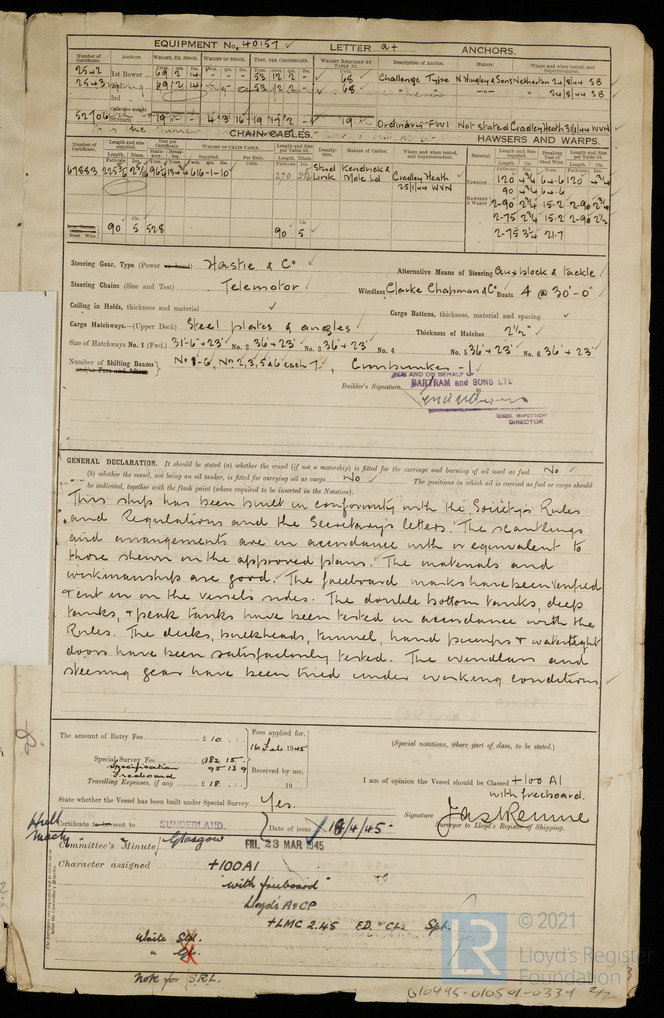 EQUIPMENT No. 40157 LETTER a+ ANCHORS.
Number of Certificate. Anchors. WEIGHT, EX. STOCK. WEIGHT OF STOCK. TEST, PER CERTIFICATE. WEIGHT REQUIRED BY TABLE 53. Description of Anchor. Makers. Where and when tested, and Superintendent.
2542 1st Bower 69 2 14 53 12 2 68 Challenge Type N. Hingley & Sons Netherton 24/8/44 SB
2543 69 2 14 53 12 2 68 24/8/44 SB
3rd
Collective weight
Stream 19 Ordinary FWI Not stated Cradley Heath 3/1/44 WVN
CHAIN CABLES. HAWSERS AND WARPS.
Number of Certificate. Length and size supplied. Test per Certificate. WEIGHT OF CHAIN CABLE. Length and size per Table 53. Description. Makers of Cables. Where and when tested, and Superintendent. Material. Length and size supplied. Breaking Test of Steel Wire. Length and size per Table 53.
67883 616-1-10 270 Stud Link Kendrick & Mole Ld Cradley Heath 25/1/44 WVN
TOWLINE 120 4¾ 64.6 120 4¾
90 4¾ 64.6
HAWSERS & WARPS 2-90 2¾ 15.2 2-90 2¾
2-75 2¾ 15.2 2-90 2½
2-75 3¼ 21.7
Steel Wire 90 5 528 90 5
Steering Gear, Type (Power or hand) Hastie & Co Alternative Means of Steering Aux block & tackle
Steering Chains (Size and Test) Telemotor Windlass Clarke Chapman & Co Boats 4 @ 30'-0"
Ceiling in Holds, thickness and material Cargo Battens, thickness, material and spacing
Cargo Hatchways.—(Upper Deck) Steel plates & angles Thickness of Hatches 2½"
Size of Hatchways No. 1 (Fwd.) 31'-6" + 23' No. 2 36' + 23' No. 3 36' + 23' No. 4 No. 5 36' + 23' No. 6 36' + 23'
Number of Shifting Beams and/or Fore and Afters No 1-6, No 2,3,5 & 6 each 7, -1
FOR AND ON BEHALF OF
BARTRAM and SONS LTD
Builder's Signature
DIRECTOR
GENERAL DECLARATION. It should be stated (a) whether the vessel (if not a motorship) is fitted for the carriage and burning of oil used as fuel No
(b) whether the vessel, not being an oil tanker, is fitted for carrying oil as cargo No The positions in which oil is carried as fuel or cargo should
be indicated, together with the flash point (where required to be inserted in the Notation).
This ship has been built in conformity with the Society's Rules
and Regulations and the Secretary's letters. The scantlings
and arrangements are in accordance with or equivalent to
those shewn on the approved plans. The materials and
workmanship are good. The freeboard marks have been verified
& cut in on the vessel's sides. The double bottom tanks, deep
tanks, & peak tanks have been tested in accordance with the
Rules. The decks, bulkheads, tunnel, hand pumps & watertight
doors have been satisfactorily tested. The windlass and
steering gear have been tried under working conditions.
The amount of Entry Fee £ 10 Fees applied for,
16 Feb 1945 (Special notations, where part of class, to be stated.)
Special Survey Fee £ 382 15
Specification 95 13 9 Received by me,
Freeboard
Travelling Expenses, if any £ 18 19 I am of opinion the Vessel should be Classed +100 A1
with freeboard.
State whether the Vessel has been built under Special Survey Yes.
Signature Jas
Surveyor to Lloyd's Register of Shipping.
Hull
Machy Certificate to be sent to SUNDERLAND. Date of issue 18/4/45
Glasgow
Committee's Minute FRI. 23 MAR 1945
Character assigned +100A1
with freeboard
Lloyd's A&CP
+LMC 2.45 F.D. CL. Spt.
White Spl.
Note for SRL.
© 2021
LR Lloyd's Register
Foundation
010495-010501-0334 2/2